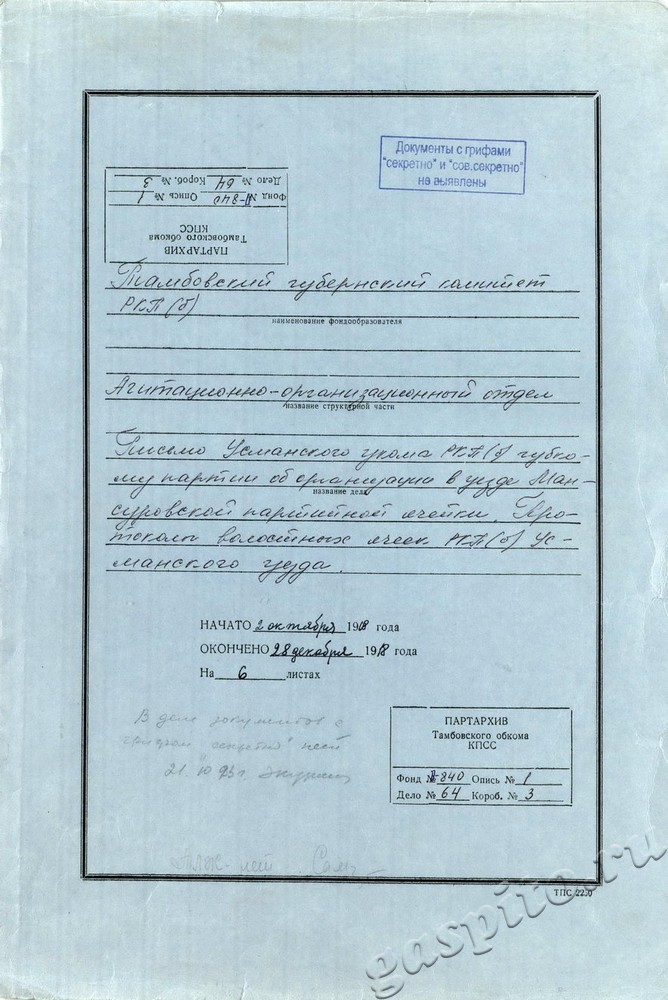 Документы с грифами
"секретно" и "сов.секретно"
не выявлены
ПАРТАРХИВ
Тамбовского обкома
КПСС
Фонд № II-840 Опись № 1
Дело № 64 Короб. № 3
Тамбовский губернский комитет
РКП(б)
наименование фондообразователя
Агитационно-организационный отдел
название структурной части
Письмо Усманского укома РКП(б) губко-
му партии об организации в уезде Ман-
название дела
суровской партийной ячейки. Про-
токолы волостных ячеек РКП(б) Ус-
манского уезда.
НАЧАТО 2 октября 1918 года
ОКОНЧЕНО 28 декабря 1918 года
На 6 листах
В деле документов с
грифом "секретно" нет
21.
ПАРТАРХИВ
Тамбовского обкома
КПСС
Фонд № II-840 Опись № 1
Дело № 64 Короб. № 3
нет
ТПС 2250
gaspito.ru